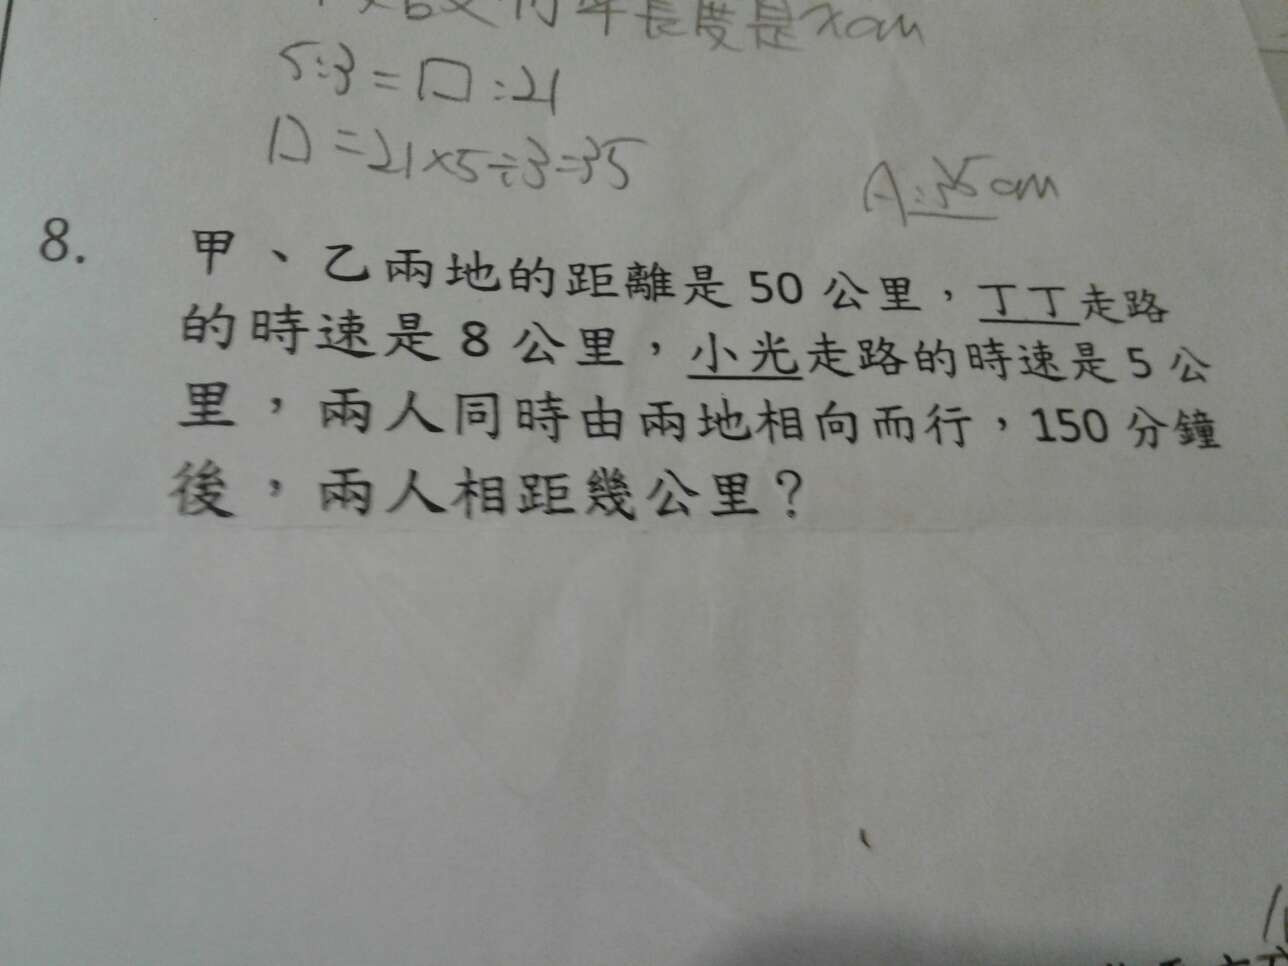 長度是xcm
5:3=□:21
□=21×5÷3=35
A:35cm
8. 甲、乙兩地的距離是 50 公里，丁丁走路
的時速是 8 公里，小光走路的時速是 5 公
里，兩人同時由兩地相向而行，150 分鐘
後，兩人相距幾公里？